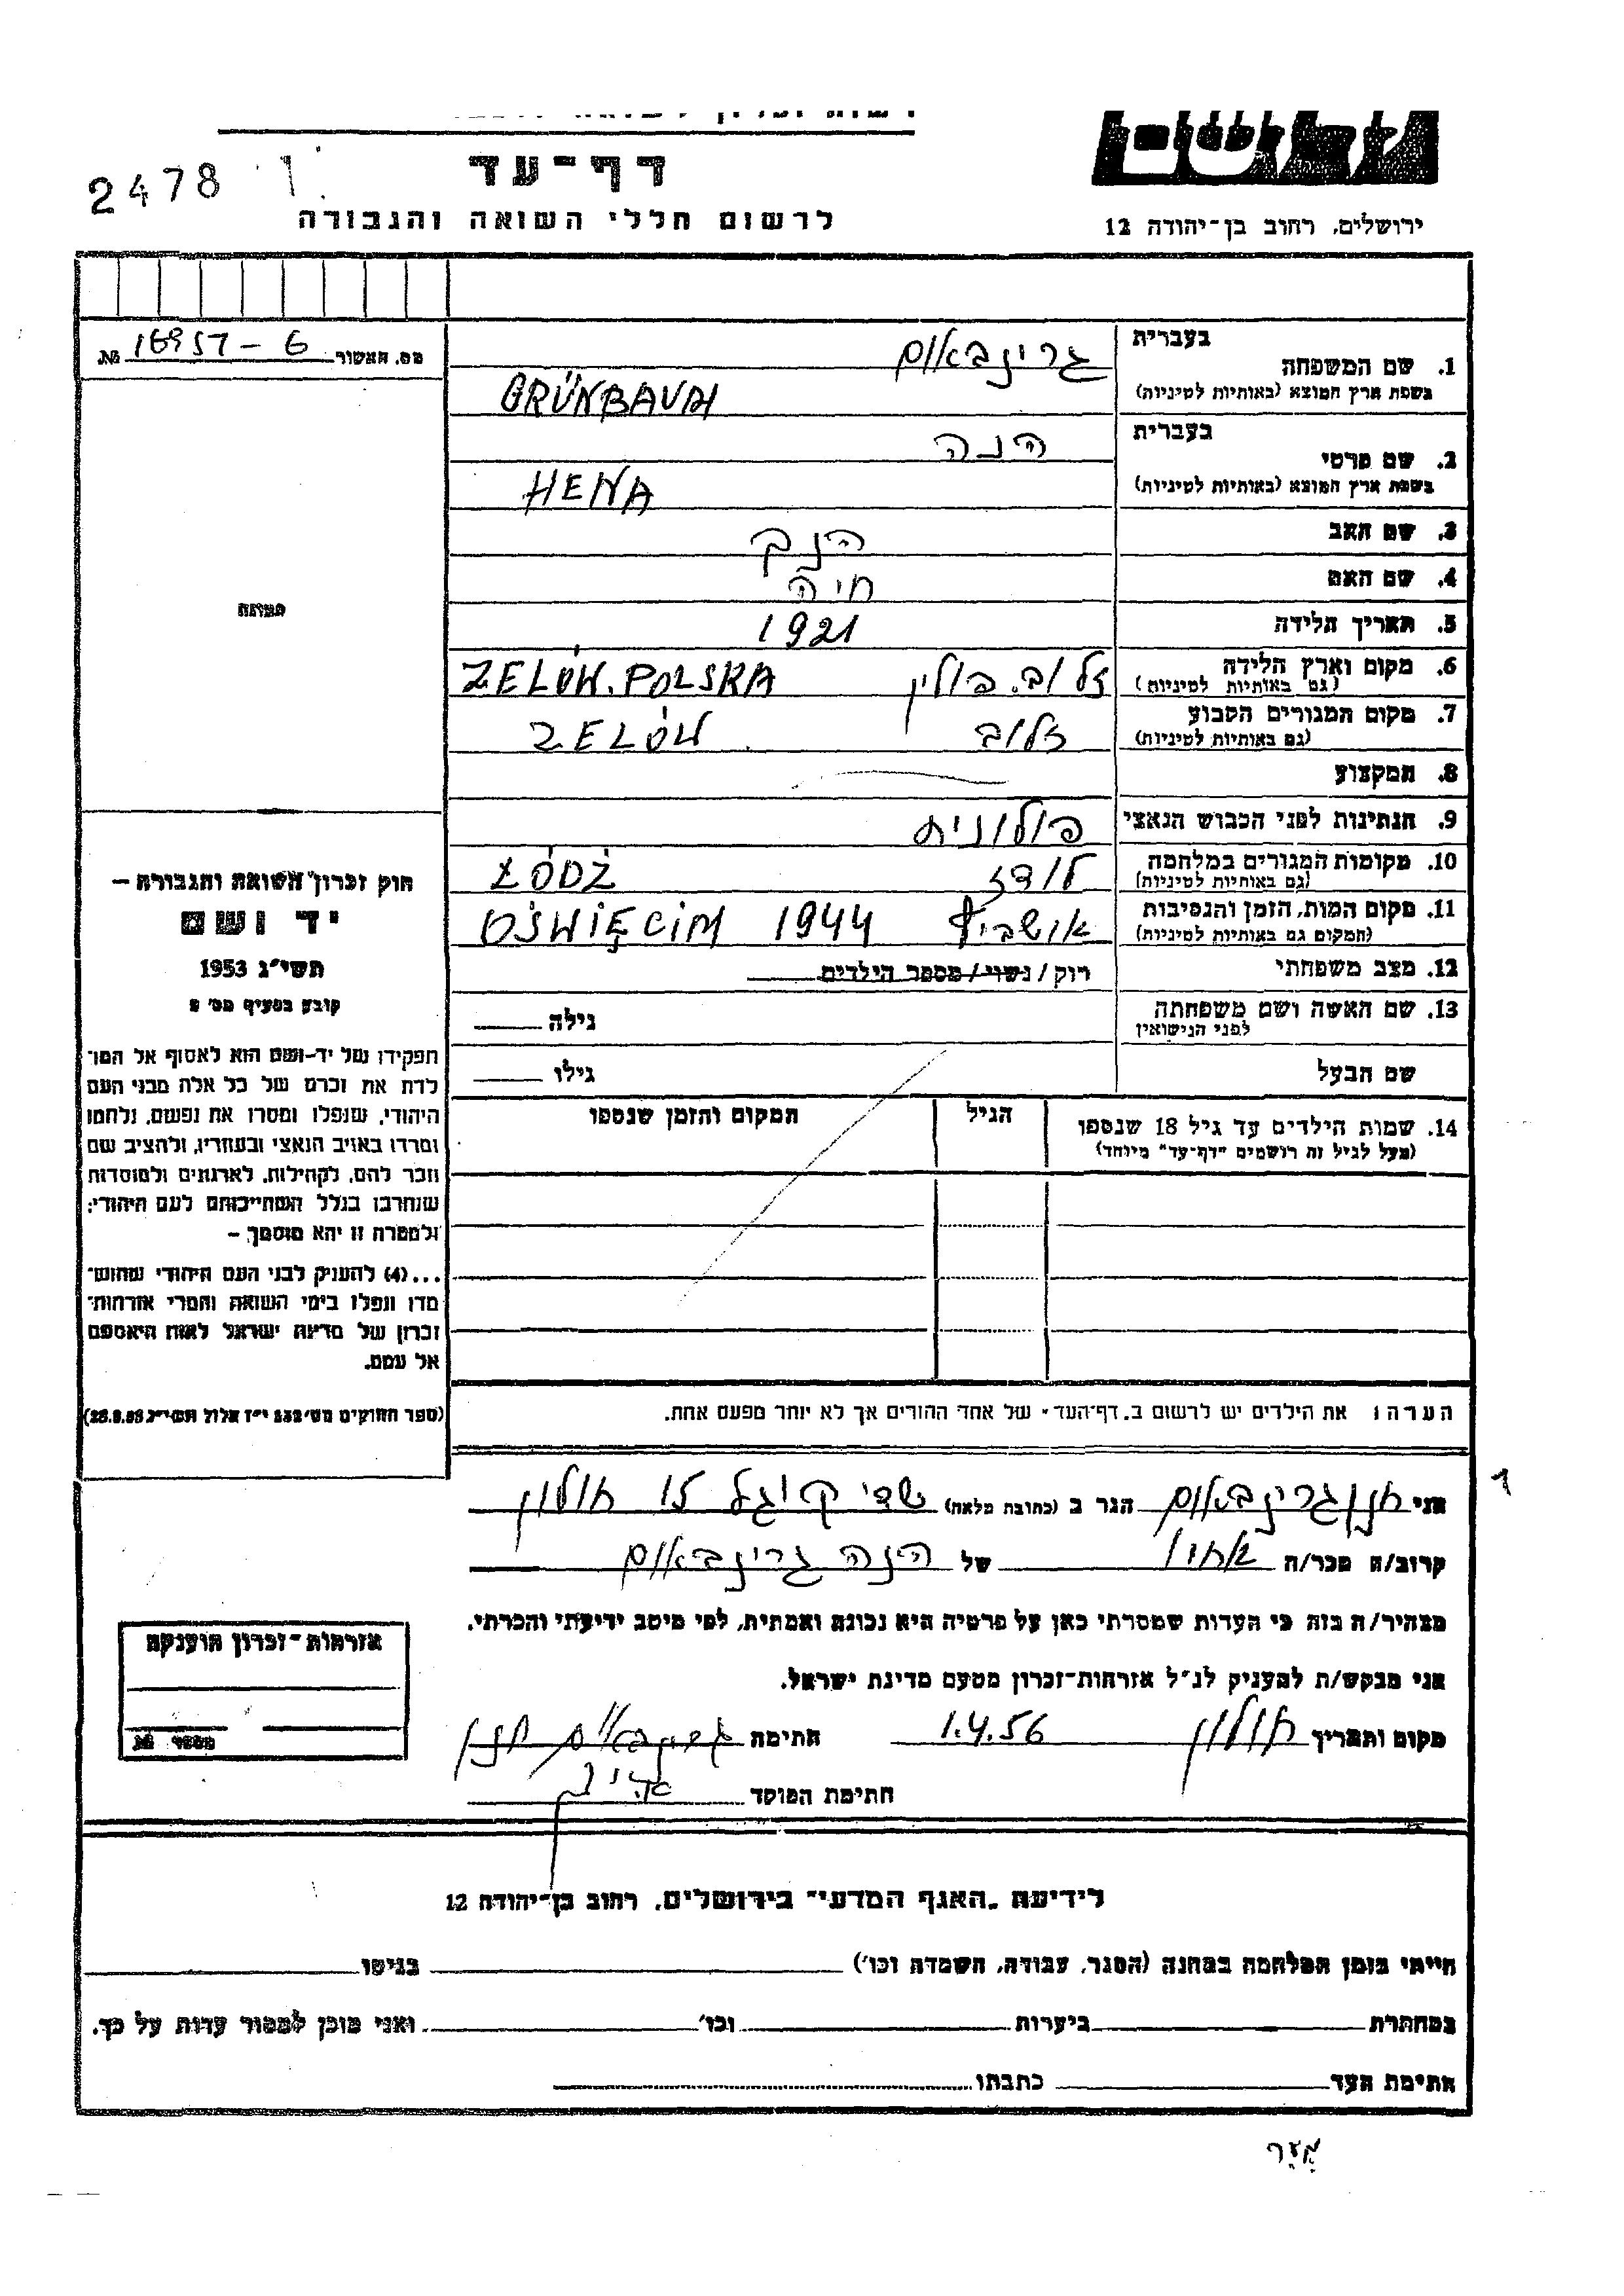 דף-עד
2478
לרשום חללי השואה והגבורה
ירושלים, רחוב בן-יהודה 12
מס. האשור 16957-6 №
1. שם המשפחה
בעברית גרינבאום
בשפת ארץ המוצא (באותיות לטיניות) GRÜNBAUM
2. שם פרטי
בעברית הנה
בשפת ארץ המוצא (באותיות לטיניות) HENA
3. שם האב הנך
4. שם האם חיה
תמונה
5. תאריך הלידה 1921
6. מקום וארץ הלידה (גם באותיות לטיניות) זלוב. פולין ZELÓW. POLSKA
7. מקום המגורים הקבוע (גם באותיות לטיניות) זלוב ZELÓW
8. המקצוע
9. הנתינות לפני הכבוש הנאצי פולונית
10. מקומות המגורים במלחמה (גם באותיות לטיניות) לודז ŁÓDŻ
11. מקום המות, הזמן והנסיבות (המקום גם באותיות לטיניות) אושביץ OŚWIĘCIM 1944
12. מצב משפחתי רוק / נשוי / מספר הילדים
13. שם האשה ושם משפחתה לפני הנישואין גילה
שם הבעל גילו
14. שמות הילדים עד גיל 18 שנספו (מעל לגיל זה רושמים "דף-עד" מיוחד) הגיל המקום והזמן שנספו
חוק זכרון השואה והגבורה –
יד ושם
תשי"ג 1953
קובע בסעיף מס' 2
תפקידו של יד-ושם הוא לאסוף אל המו־
לדת את זכרם של כל אלה מבני העם
היהודי, שנפלו ומסרו את נפשם, נלחמו
ומרדו באויב הנאצי ובעוזריו, ולהציב שם
וזכר להם, לקהילות, לארגונים ולמוסדות
שנחרבו בגלל השתייכותם לעם היהודי;
ולמטרה זו יהא מוסמך –
...(4) להעניק לבני העם היהודי שהוש־
מדו ונפלו בימי השואה והמרי אזרחות־
זכרון של מדינת ישראל לאות היאספם
אל עמם.
הערה: את הילדים יש לרשום ב"דף-העד" של אחד ההורים אך לא יותר מפעם אחת.
אני חנן גרינבאום הגר ב (כתובת מלאה) 15 חולון
קרוב/ה מכר/ה אחיו של הנה גרינבאום
מצהיר/ה בזה כי העדות שמסרתי כאן על פרטיה היא נכונה ואמתית, לפי מיטב ידיעתי והכרתי.
אני מבקש/ת להעניק לנ"ל אזרחות-זכרון מטעם מדינת ישראל.
מקום ותאריך חולון 1.4.56 חתימה גרינבאום חנן
חתימת הפוקד
אזרחות-זכרון הוענקה
מספר №
לידיעת "האגף המדעי" בירושלים, רחוב בן-יהודה 12
חייתי בזמן המלחמה במחנה (הסגר, עבודה, השמדה וכו') בגיטו
במחתרת ביערות וכו' ואני מוכן למסור עדות על כך.
חתימת העד כתבתו